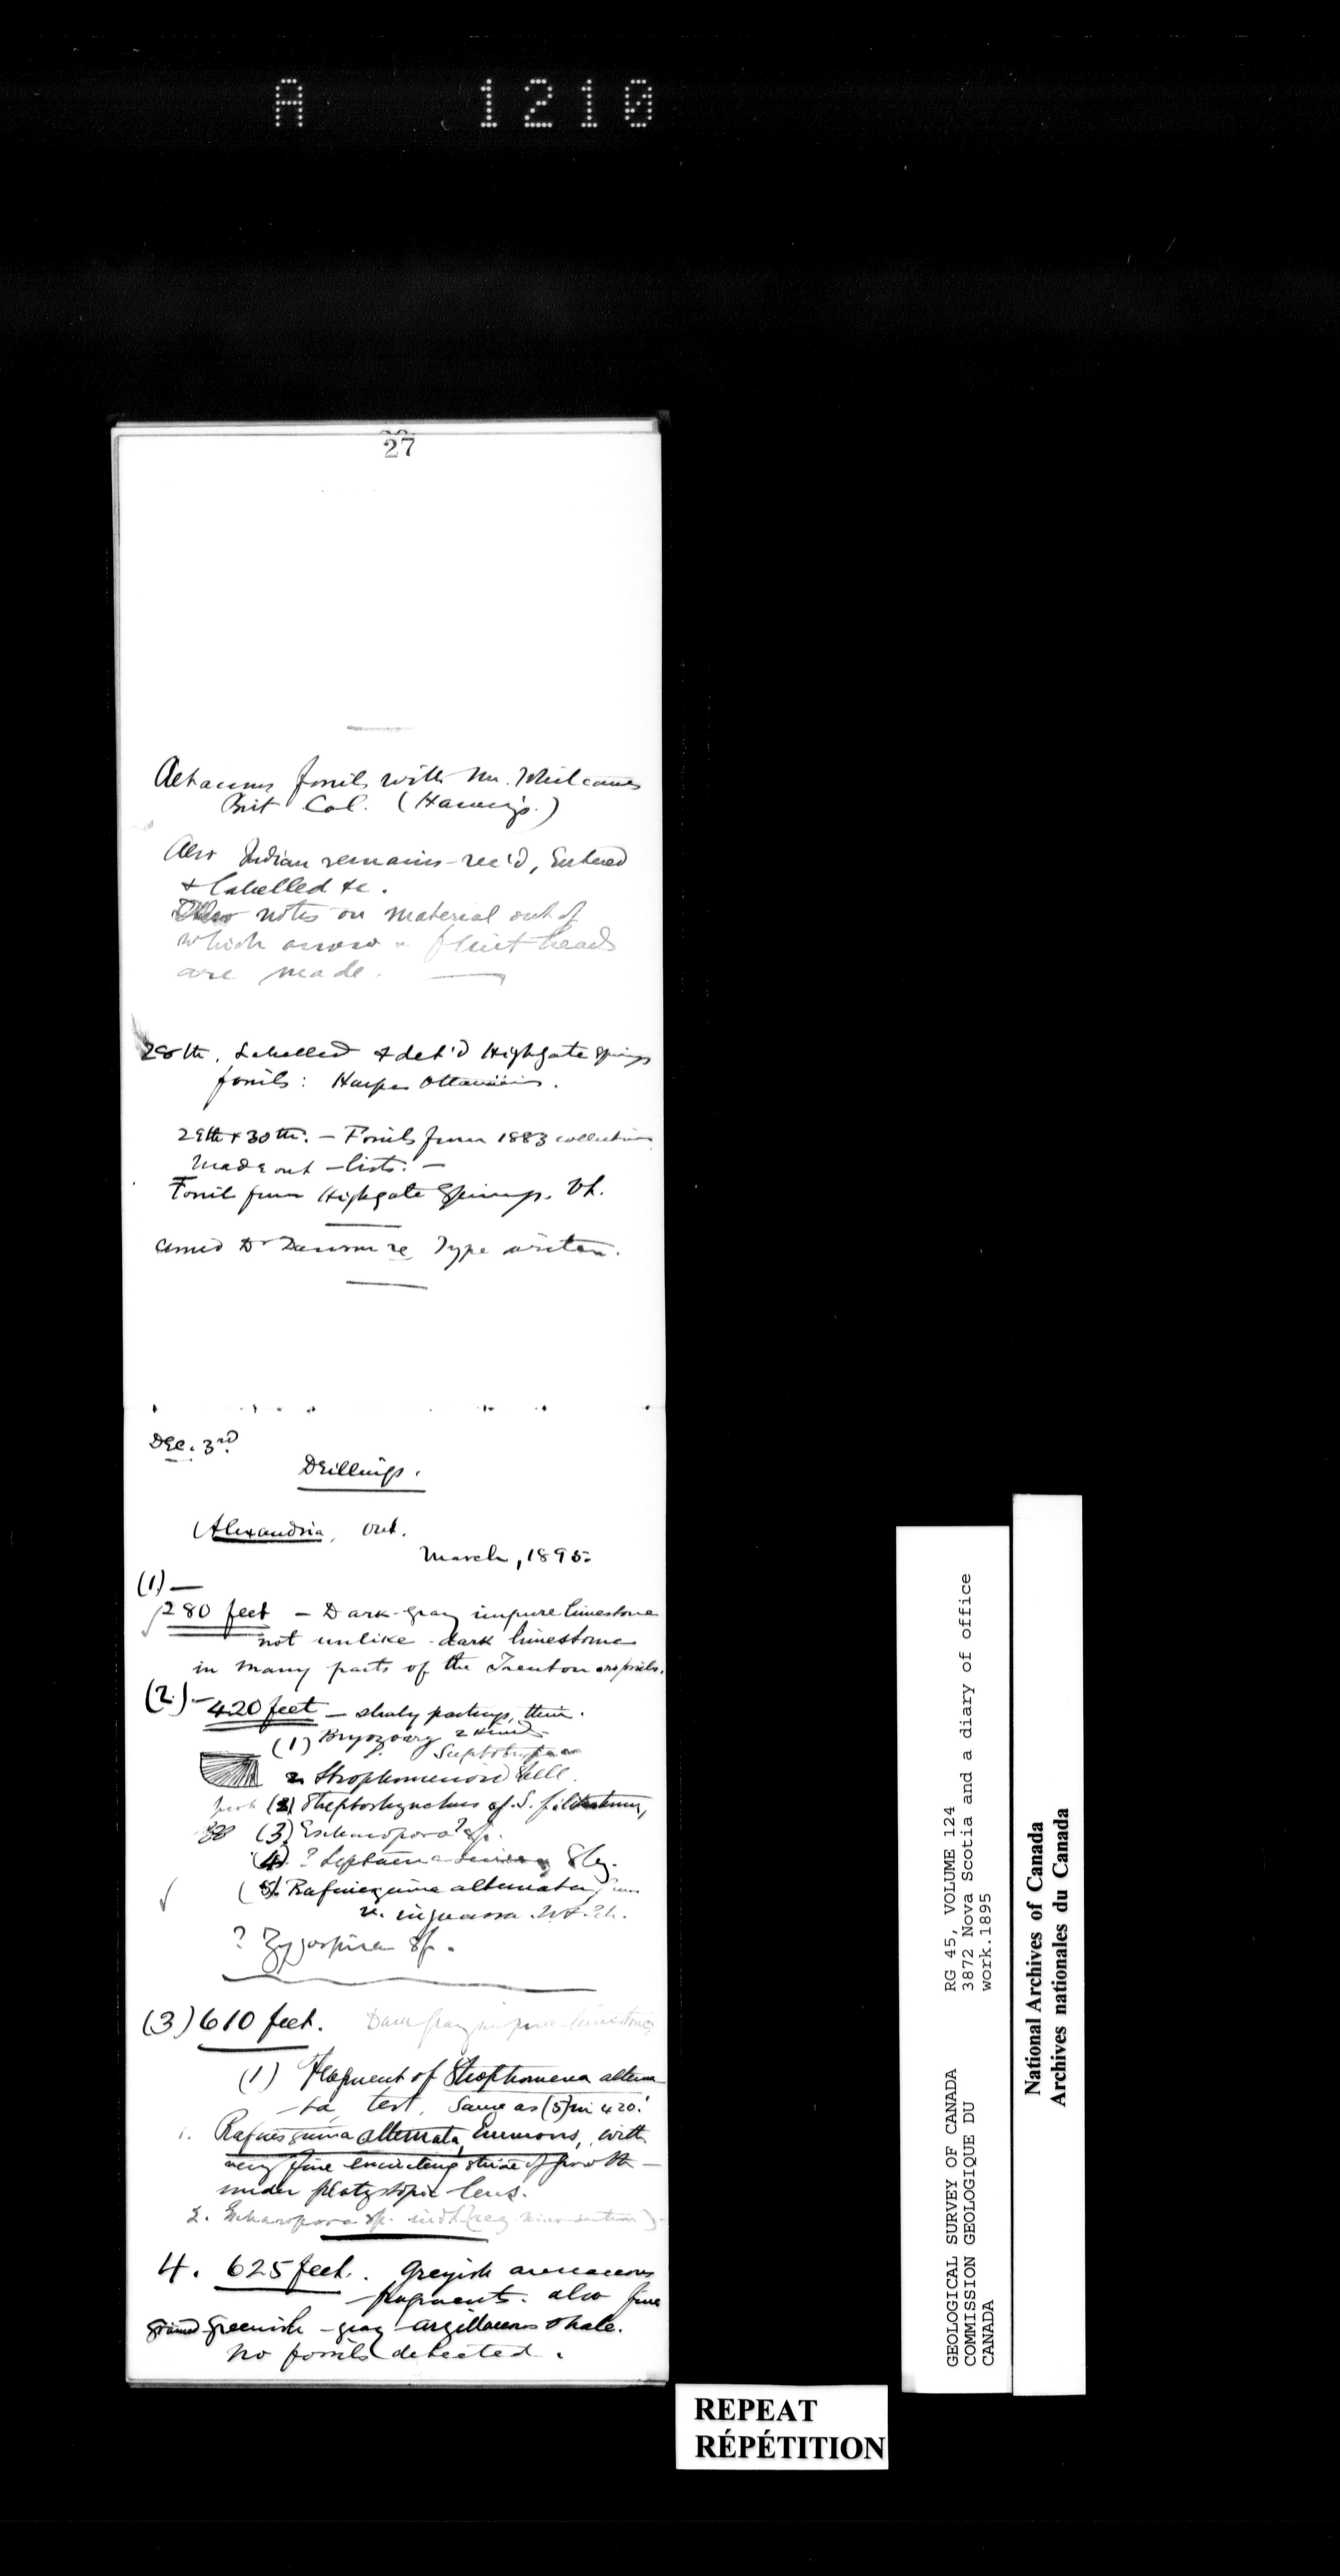 A 1210
27
Cretaceous fossils with Mr. Whiteaves
Brit Col. (Harvey's.)
Also Indian remains - rec'd, Entered
& labelled &c.
notes on material out of
which arrow & flint heads
are made.
28th. Labelled & det'd Highgate Springs
fossils: Harpes Ottawaensis.
29th & 30th. - Fossils from 1883 collections
made out - lists. -
Fossils from Highgate Springs. Vt.
Dr Dawson re Type writer.
Dec. 3rd
Drillings.
Alexandria, Ont.
March, 1895.
(1) —
280 feet - Dark-gray impure limestone
not unlike dark limestone
in many parts of the Trenton no fossils.
(2.) - 420 feet - shaly partings, thin.
(1) Bryozoary 2 kinds
2 Strophomenoid shell.
prob (2) Streptorhynchus cf. S. filitextum,
(3) Escharopora? sp.
(4) ? Leptaena sericea Sby.
(5) Rafinesquina alternata,
? Zygospira sp.
(3) 610 feet. Dark gray impure limestone
(1) Fragment of Strophomena alterna-
-ta, test, same as (5) in 420.'
1. Rafinesquina alternata, Emmons, with
very fine encircling striae of growth -
under lens.
2. Escharopora sp. indt.
4. 625 feet. Greyish arenaceous
fragments. also fine
grained greenish-gray argillaceous shale.
No fossils detected.
GEOLOGICAL SURVEY OF CANADA
COMMISSION GEOLOGIQUE DU
CANADA
RG 45, VOLUME 124
3872 Nova Scotia and a diary of office
work.1895
National Archives of Canada
Archives nationales du Canada
REPEAT
RÉPÉTITION